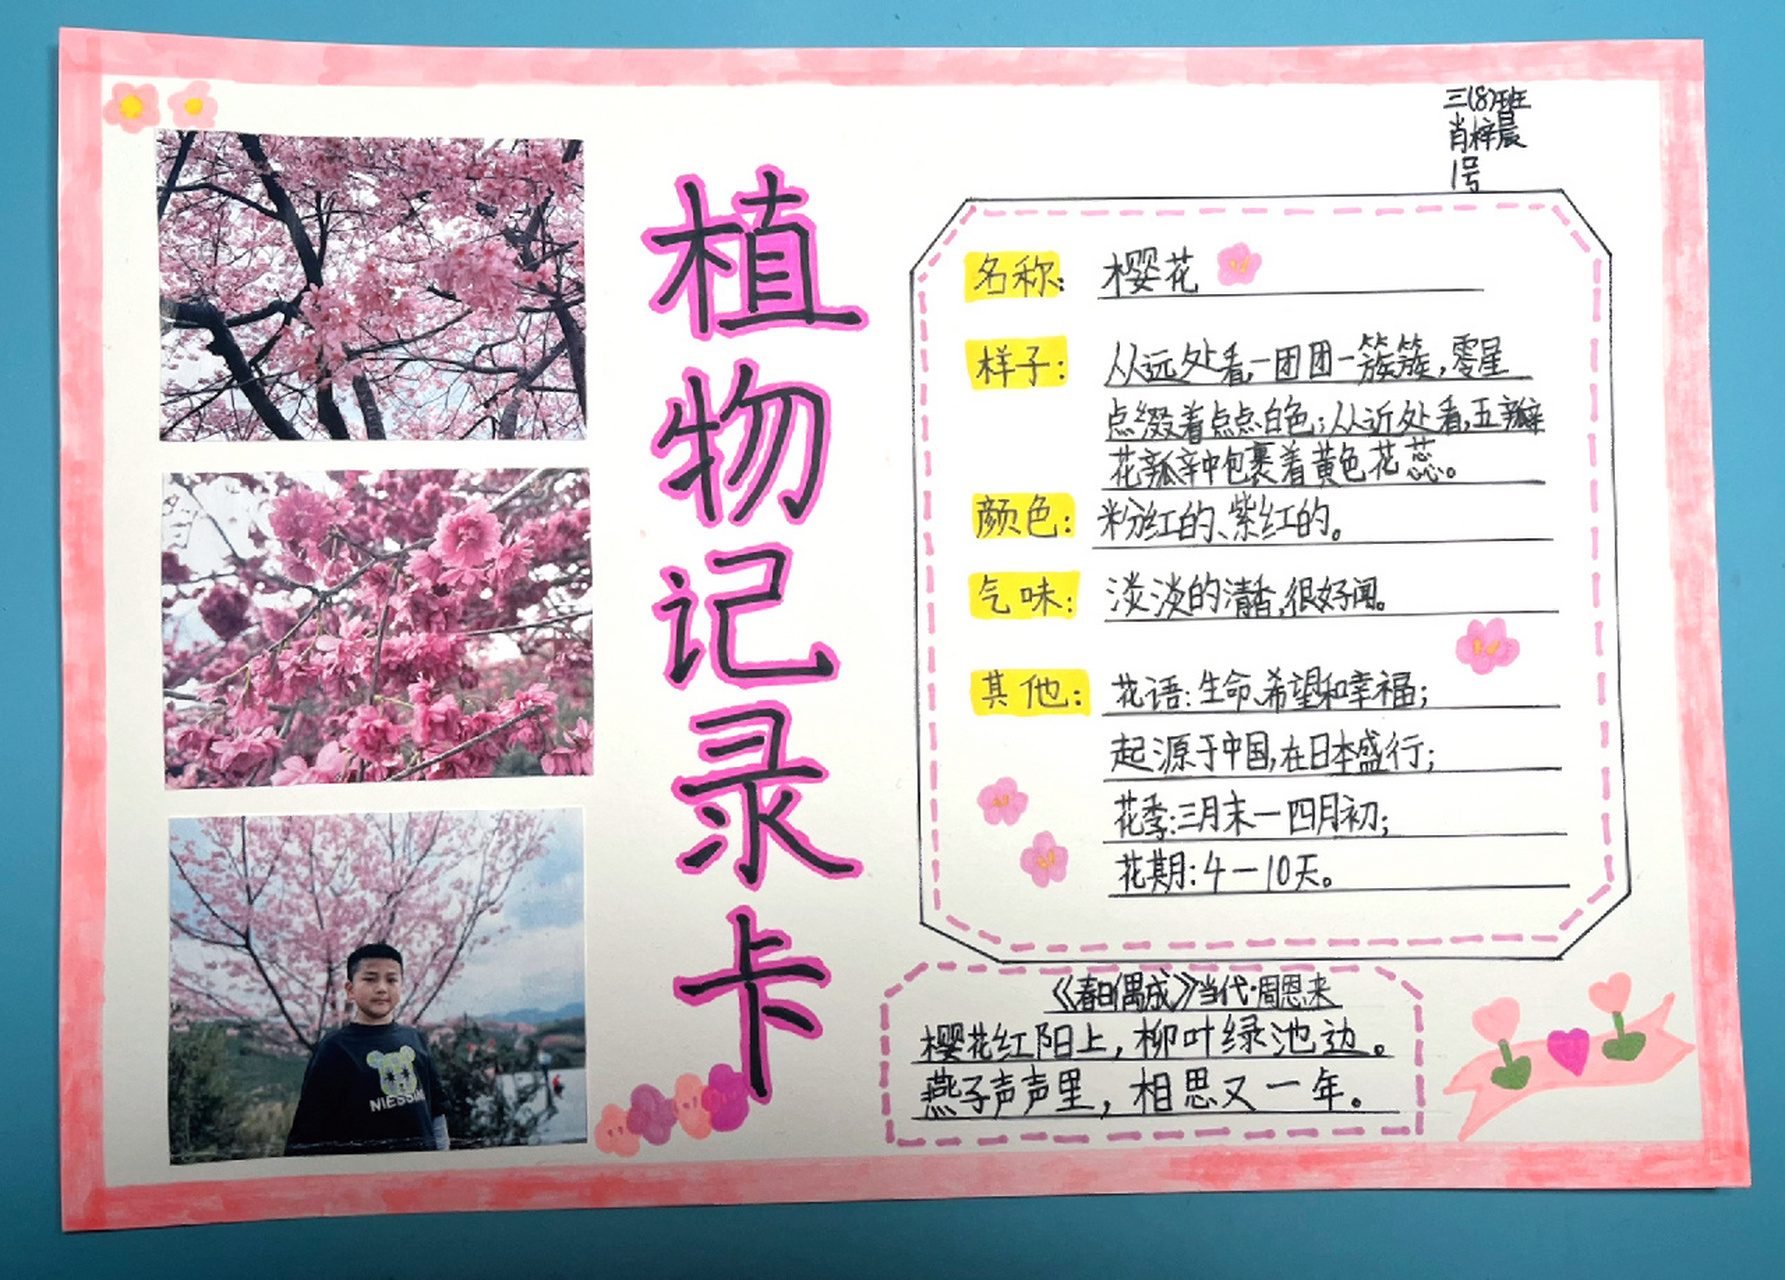 三(8)班
肖梓晨
1号
植物记录卡
名称: 樱花
样子: 从远处看,一团团一簇簇,零星
点缀着点点白色;从近处看,五瓣
花瓣中包裹着黄色花蕊。
颜色: 粉红的、紫红的。
气味: 淡淡的清香,很好闻。
其他: 花语:生命、希望和幸福;
起源于中国,在日本盛行;
花季:三月末一四月初;
花期:4一10天。
《春日偶成》当代·周恩来
樱花红阳上,柳叶绿池边。
燕子声声里,相思又一年。